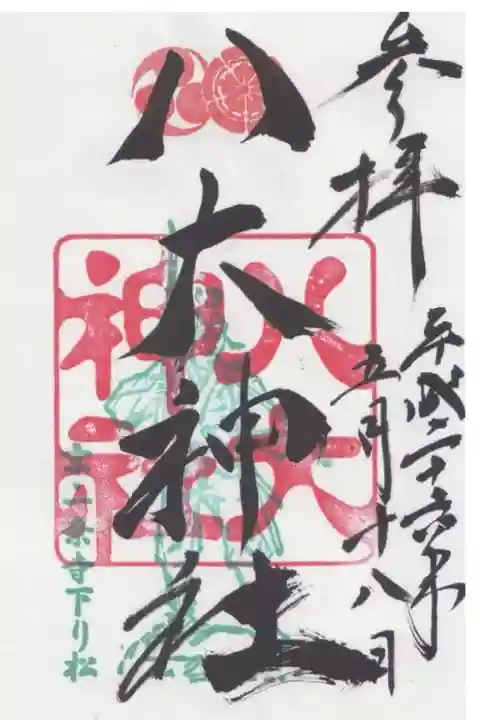 参拝
平成二十六年
五月十八日
八大神社
八大
神社
一乗寺下り松